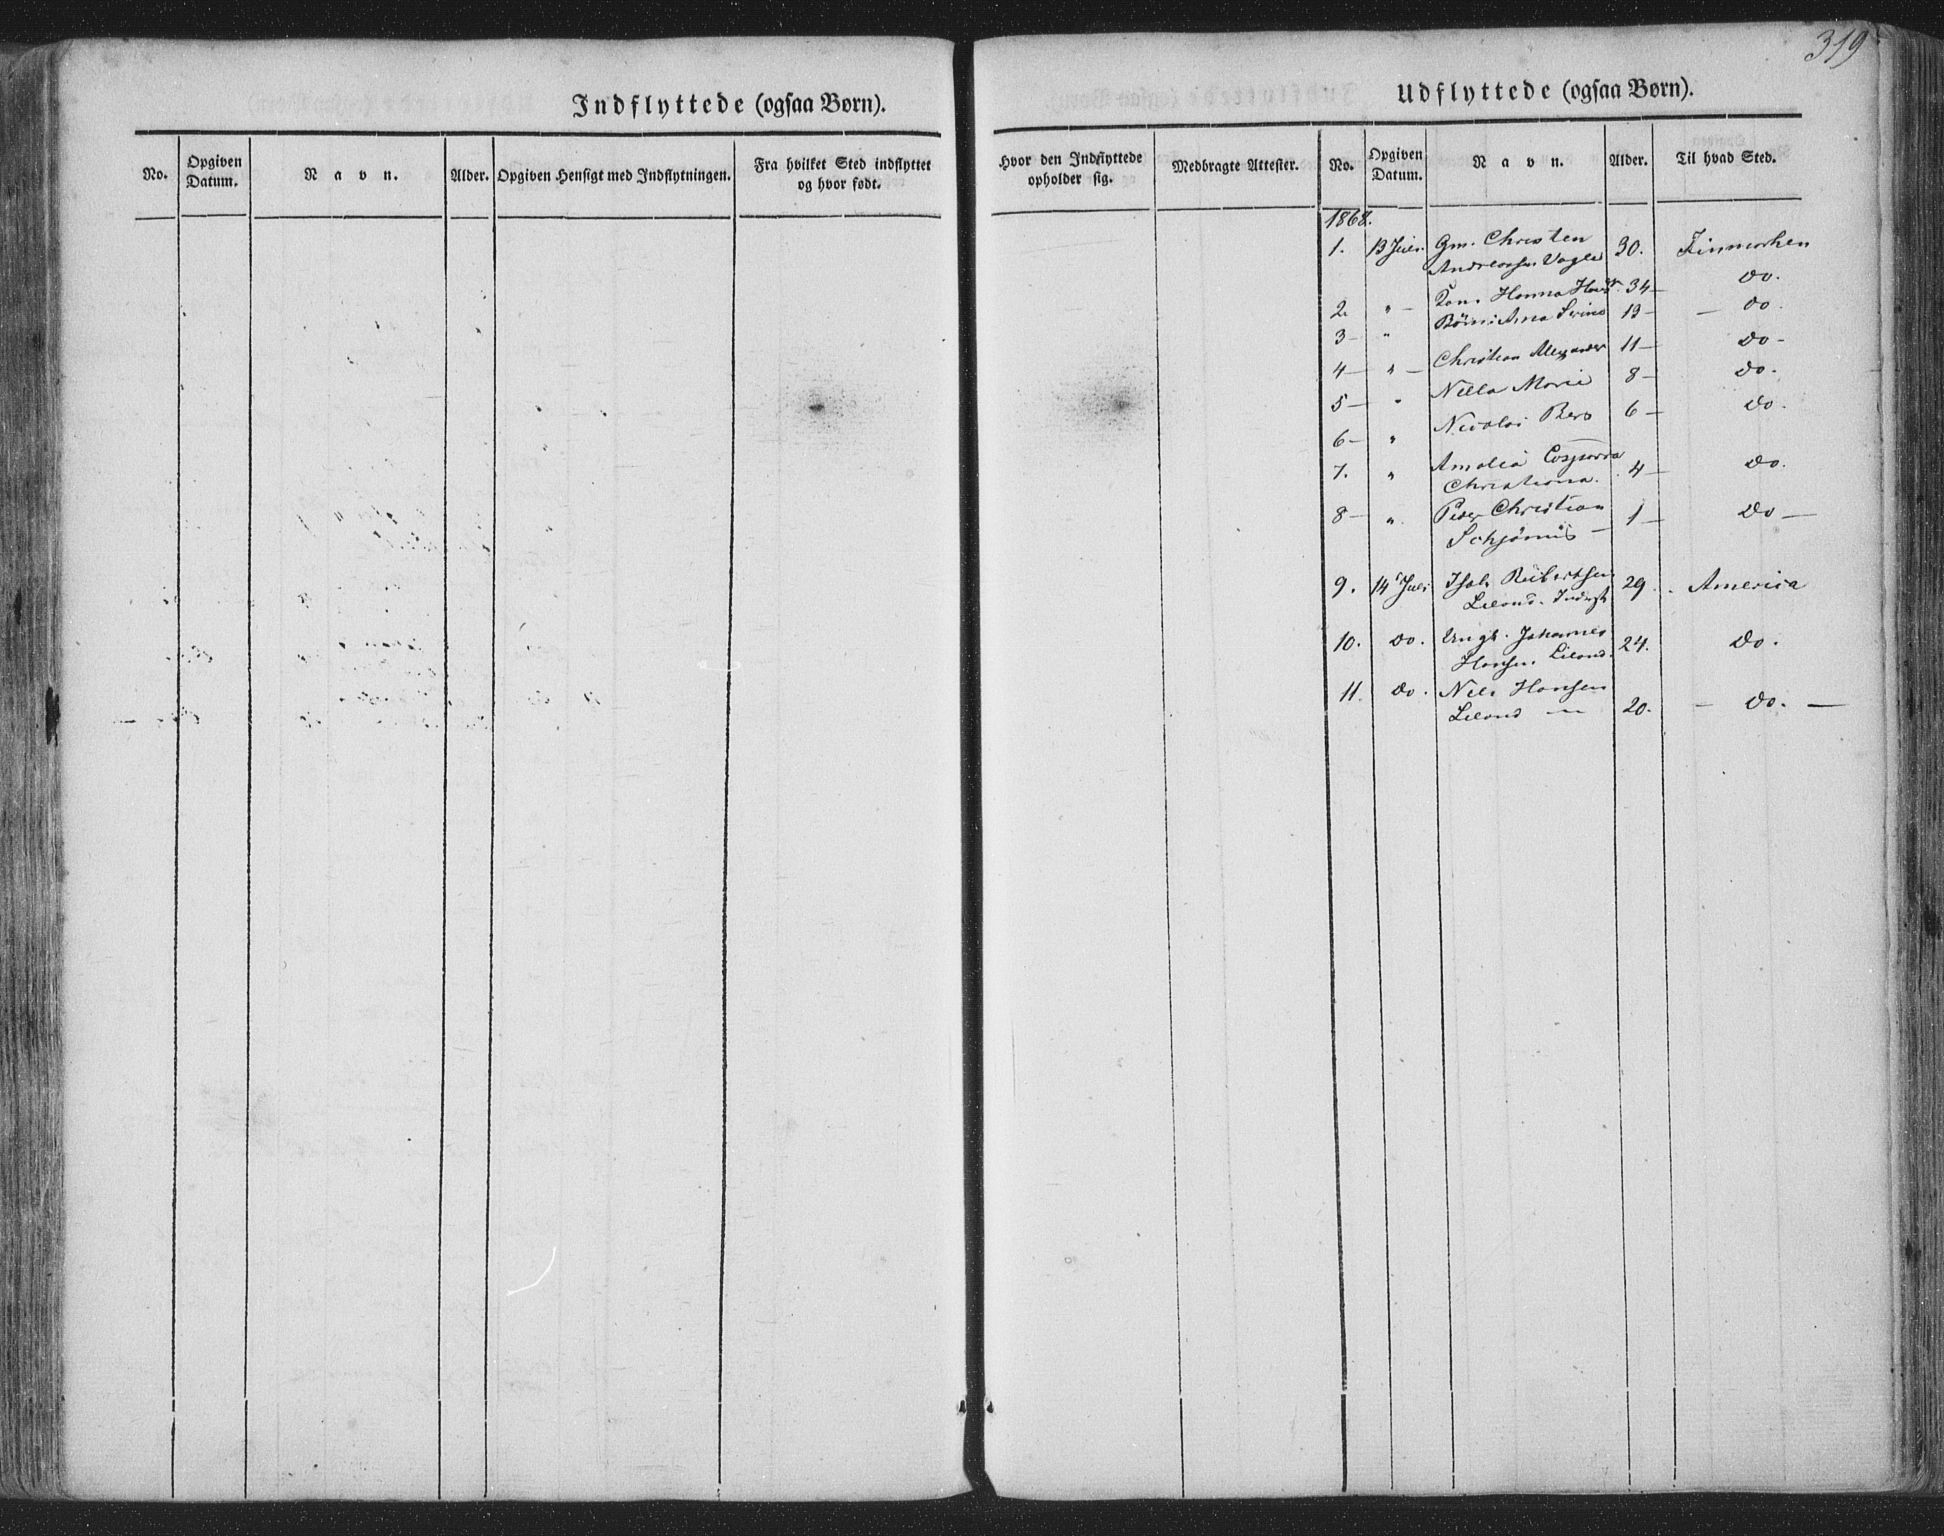 319
Indflyttede (ogsaa Børn).
No.
Opgiven Datum.
Navn.
Alder.
Opgiven Hensigt med Indflytningen.
Fra hvilket Sted indflyttet og hvor født.
Hvor den Indflyttede opholder sig.
Medbragte Attester.
Udflyttede (ogsaa Børn).
No.
Opgiven Datum.
Navn.
Alder.
Til hvad Sted.
1868.
1. 13 Juli Gm. Christen 30. Finmarken
Andreassen Vagle
2. " — Kone Hanna 34 — Do.
3 — " Børn: Ana Serine 13 — — Do.
4 — " — Christian Alexander 11 — Do —
5 — " Nella Marie 8 — Do.
6 — " Nicolai Berg 6 — Do.
7. " Amalia Casparra 4 — Do.
Christiana.
8 — " Peder Christian 1 — Do —
Schjønnis —
9. 14 Juli Isak Robertsen 29. America
Leland. Inderst
10. Do. Ungk. Johannes 24. Do.
Hansen Leland.
11. Do. Nils Hansen
Leland — 20. — Do. —